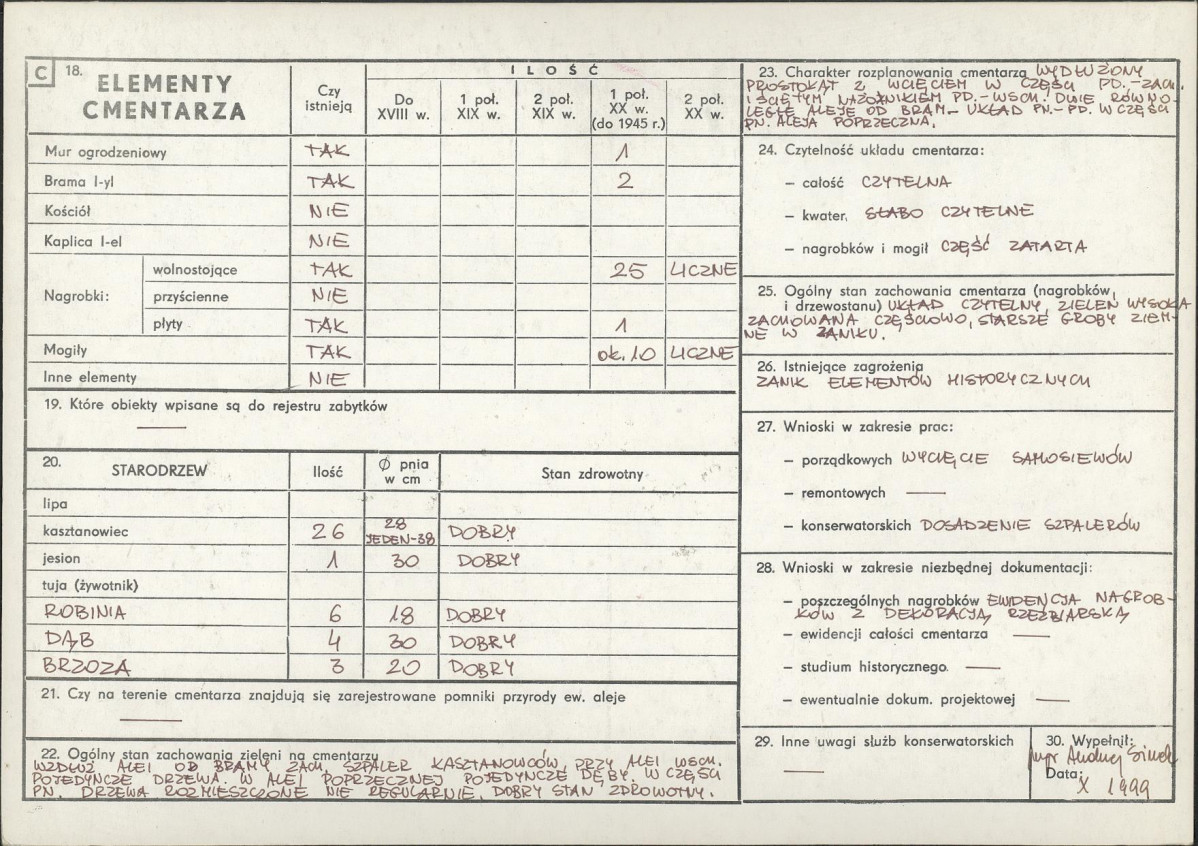 C 18. ELEMENTY
CMENTARZA
Czy
istnieją
ILOŚĆ
Do
XVIII w.
1 poł.
XIX w.
2 poł.
XIX w.
1 poł.
XX w.
(do 1945 r.)
2 poł.
XX w.
Mur ogrodzeniowy TAK 1
Brama I-yl TAK 2
Kościół NIE
Kaplica I-el NIE
Nagrobki:
wolnostojące TAK 25 LICZNE
przyścienne NIE
płyty TAK 1
Mogiły TAK ok. 10 LICZNE
Inne elementy NIE
19. Które obiekty wpisane są do rejestru zabytków
—
20. STARODRZEW Ilość Ø pnia
w cm Stan zdrowotny
lipa
kasztanowiec 26 28
JEDEN-38 DOBRY
jesion 1 30 DOBRY
tuja (żywotnik)
ROBINIA 6 18 DOBRY
DĄB 4 30 DOBRY
BRZOZA 3 20 DOBRY
21. Czy na terenie cmentarza znajdują się zarejestrowane pomniki przyrody ew. aleje
—
22. Ogólny stan zachowania zieleni na cmentarzu
WZDŁUŻ ALEI OD BRAMY ZACH. SZPALER KASZTANOWCÓW, PRZY ALEI WSCH.
POJEDYNCZE DRZEWA. W ALEI POPRZECZNEJ POJEDYNCZE DĘBY. W CZĘŚCI
PN. DRZEWA ROZMIESZCZONE NIE REGULARNIE. DOBRY STAN ZDROWOTNY.
23. Charakter rozplanowania cmentarza WYDŁUŻONY
PROSTOKĄT Z WCIĘCIEM W CZĘŚCI PD.-ZACH.
I ŚCIĘTYM NAROŻNIKIEM PD.-WSCH. DWIE RÓWNO-
LEGŁE ALEJE OD BRAM - UKŁAD PN-PD. W CZĘŚCI
PN. ALEJA POPRZECZNA.
24. Czytelność układu cmentarza:
— całość CZYTELNA
— kwater. SŁABO CZYTELNE
— nagrobków i mogił CZĘŚĆ ZATARTA
25. Ogólny stan zachowania cmentarza (nagrobków,
i drzewostanu) UKŁAD CZYTELNY, ZIELEŃ WYSOKA
ZACHOWANA CZĘŚCIOWO, STARSZE GROBY ZIEM-
NE W ZANIKU.
26. Istniejące zagrożenia
ZANIK ELEMENTÓW HISTORYCZNYCH
27. Wnioski w zakresie prac:
— porządkowych WYCIĘCIE SAMOSIEWÓW
— remontowych —
— konserwatorskich DOSADZENIE SZPALERÓW
28. Wnioski w zakresie niezbędnej dokumentacji:
— poszczególnych nagrobków EWIDENCJA NAGROB-
KÓW Z DEKORACJĄ RZEŹBIARSKĄ
— ewidencji całości cmentarza —
— studium historycznego. —
— ewentualnie dokum. projektowej —
29. Inne uwagi służb konserwatorskich
—
30. Wypełnił:
mgr Andrzej
Data:
X 1999